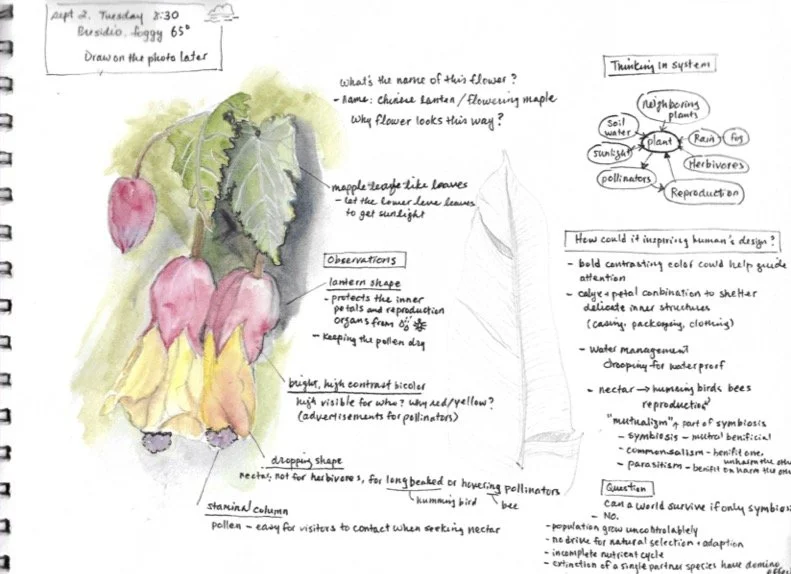 Sept 2, Tuesday 8:30
Presidio, foggy 65°
Draw on the photo later
What's the name of this flower?
- Name: Chinese lantern / flowering maple
Why flower looks this way?
mapple leafe like leaves
- let the lower leve leaves
to get sunlight
Observations
lantern shape
- protects the inner
petals and reproduction
organs from
- keeping the pollen dry
bright, high contrast bicolor
high visible for who? why red/yellow?
(advertisements for pollinators)
dropping shape
nectar, not for herbivores, for long beaked or hovering pollinators
humming bird
bee
staminal column
pollen - easy for visitors to contact when seeking nectar
Thinking in system
Neighboring
plants
Soil
water
sunlight
plant
Rain
fog
Herbivores
pollinators
Reproduction
How could it inspiring human's design?
- bold contrasting color could help guide
attention
- calyx + petal conbination to shelter
delicate inner structures
(casing, packaging, clothing)
- water management
dropping for waterproof
- nectar → humming birds bees
reproduction
"mutualism" part of symbiosis
- symbiosis - mutral benificial
- commensalism - benifit one,
unharm the other
- parasitism - benifit one harm the other
Question
Can a world survive if only symbiosis
- No.
- population grow uncontrolablely
- no drive for natural selection + adaption
- incomplete nutrient cycle
- extinction of a single partner species have domino
effect